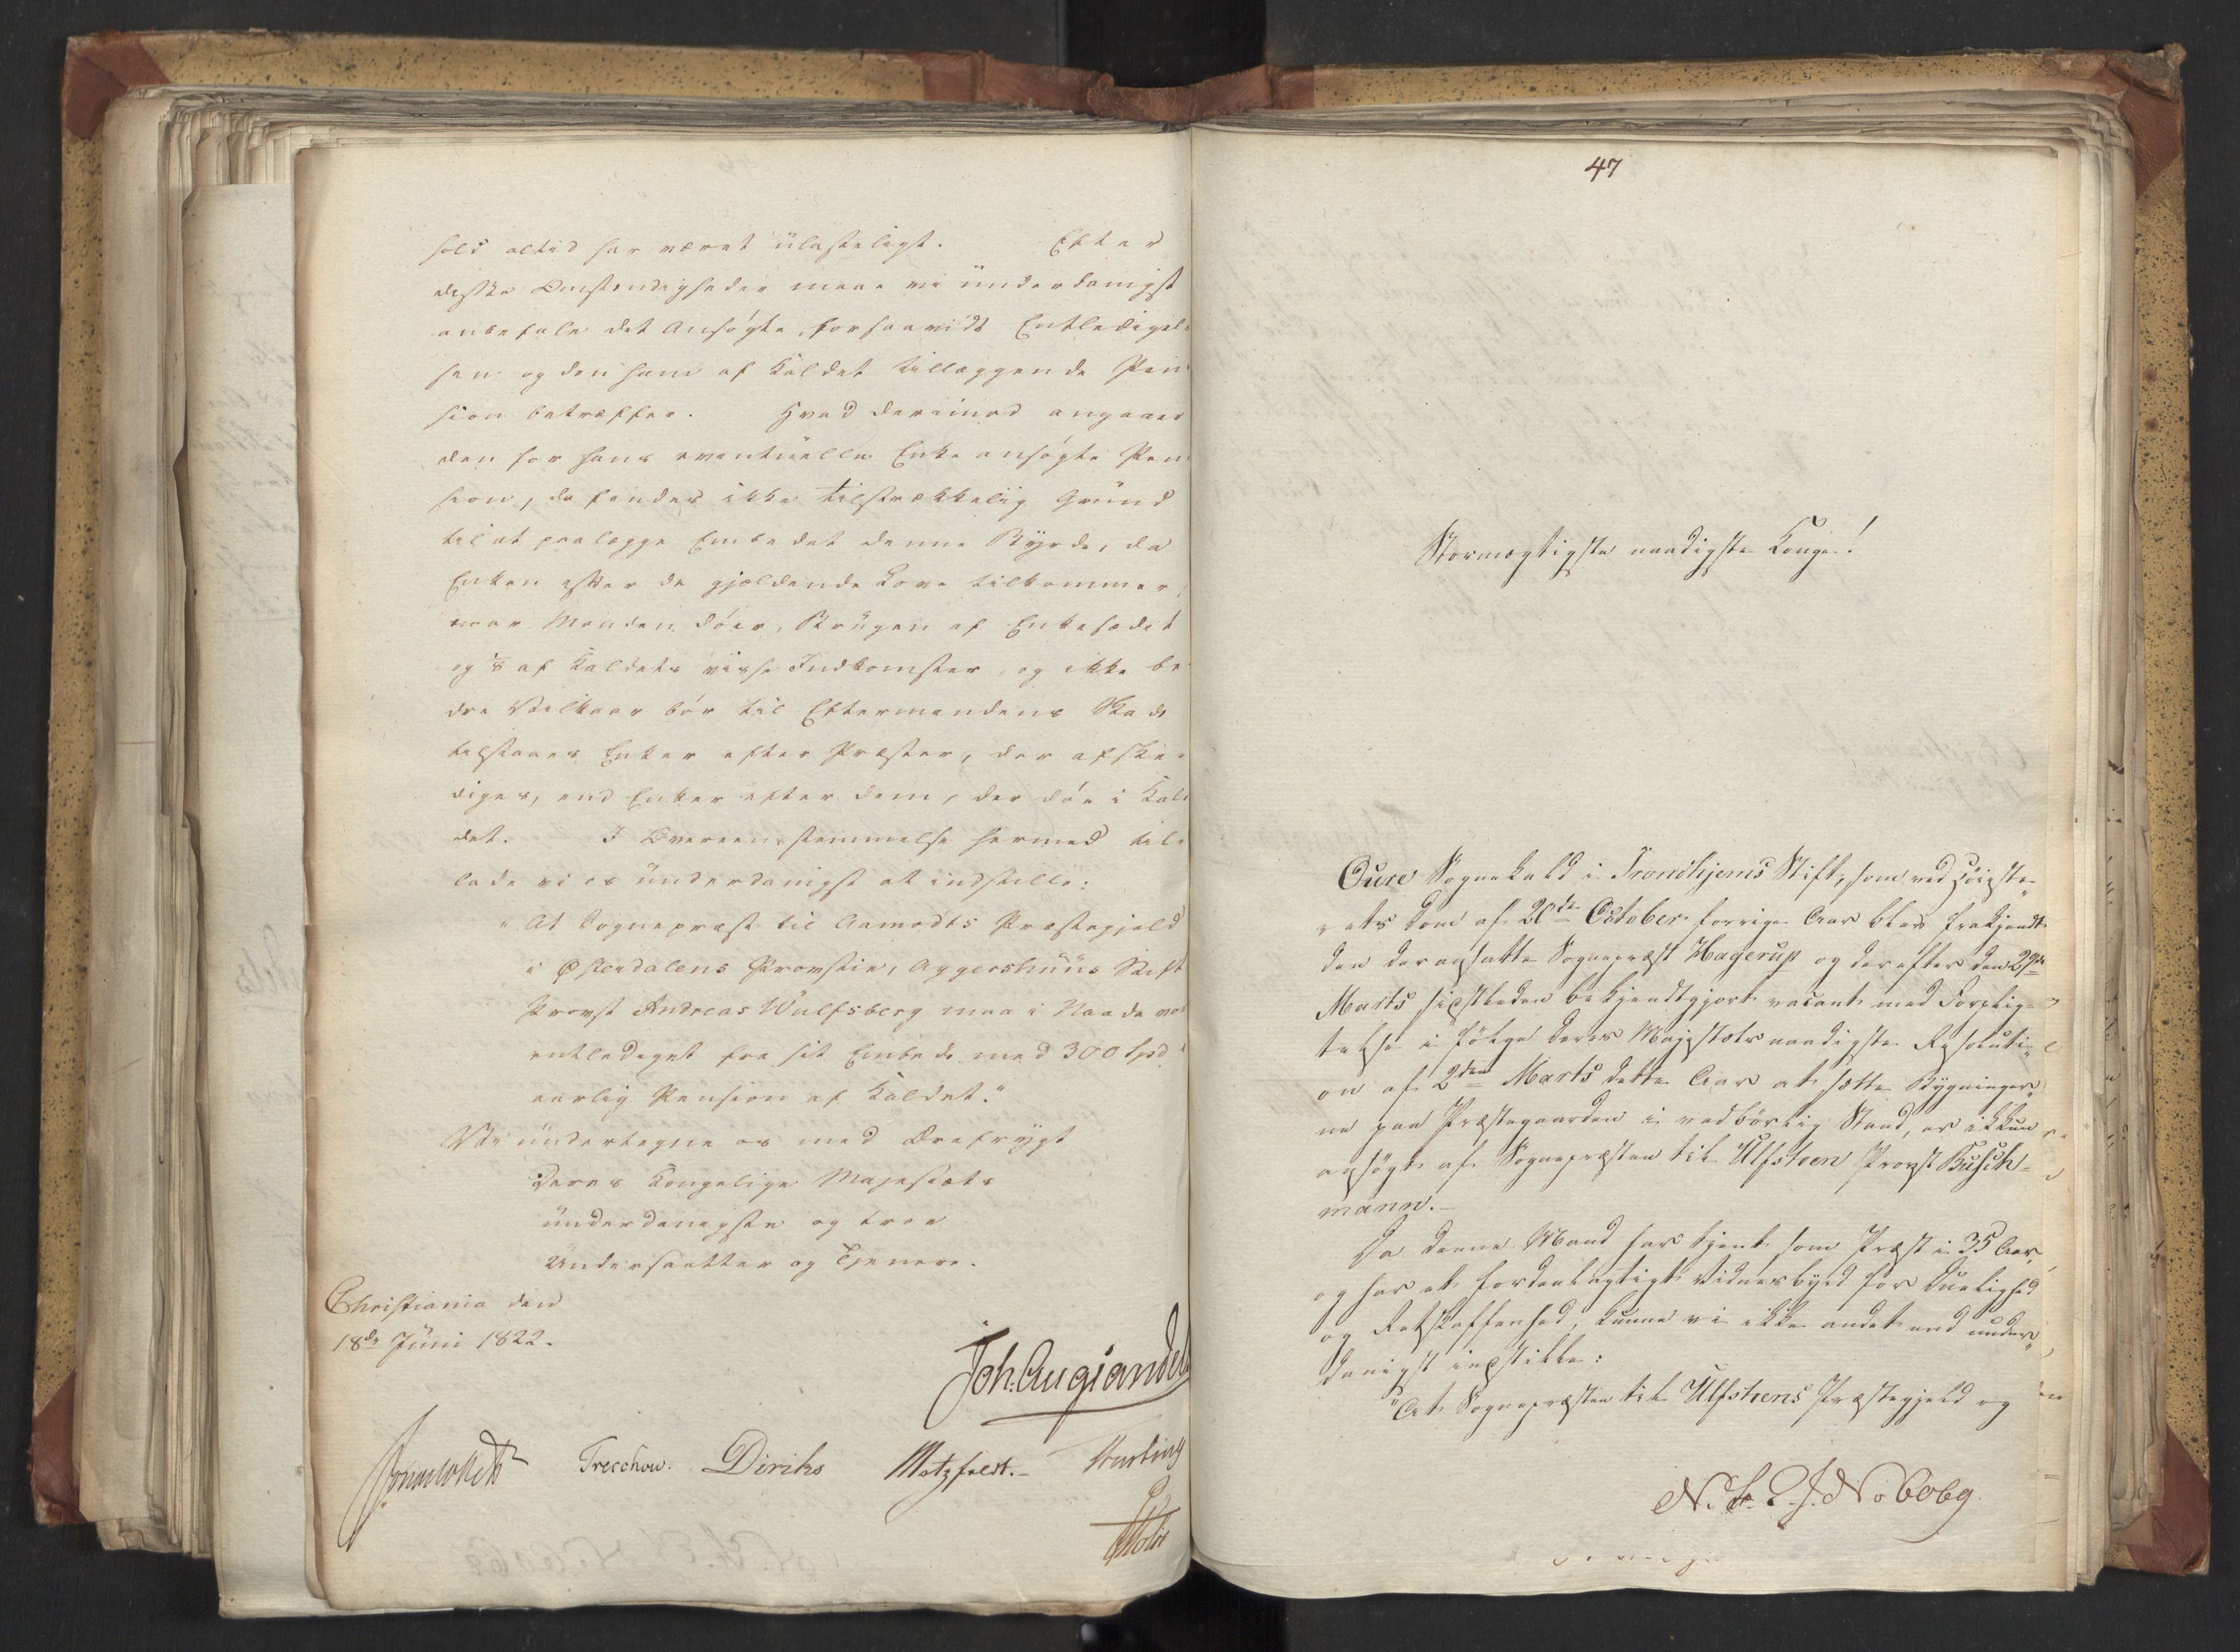 hold altid har været ulasteligt. Efter
disse Omstændigheder maae vi underdanigst
anbefale det Ansøgte, forsaavidt Entledigel-
sen og den ham af Kaldet tillæggende Pen-
sion betræffer. Hvad derimod angaaer
den for hans eventuelle Enke ansøgte Pen-
sion, da findes ikke tilstrækkelig Grund
til at paalægge Embedet denne Byrde, da
Enken efter de gjældende Love tilkommer,
naar Manden døer, Brugen af Enkesædet
og 1/8 af Kaldets visse Indkomster, og ikke be-
dre Vilkaar bør til Eftermandens Skade
tilstaaes Enker efter Præster, der afske-
diges, end Enker efter dem, der døe i Kal-
det. I Overeensstemmelse hermed til-
lade vi os underdanigst at indstille:
"At Sognepræst til Aamodts Præstegjeld
i Østerdalens Provstie, Aggershuus Stift
Provst Andreas Wulfsberg maa i Naade vor-
entlediget fra sit Embede med 300 Spd
aarlig Pension af Kaldet."
Vi undertegne os med Ærefrygt
Deres Kongelige Majestæts
underdanigste og troe
Undersaatter og Tjenere.
Christiania den
18de Juni 1822.
Joh. Aug Sandels
Sommerhielm Treschow. Diriks Motzfeldt. Krog
47
Stormægtigste naadigste Konge!
Oure Sognekald i Trondhjems Stift, som ved Høieste-
rets Dom af 20de October forrige Aar blev frakjendt
den deransatte Sognepræst Hagerup og derefter den 29de
Marts sidstleden bekjendtgjort vacant med Forplig-
telse i Følge Deres Majestæts naadigste Resoluti-
on af 2den Marts dette Aar at sætte Bygninger-
ne paa Præstegaarden i vedbørlig Stand, er ikkun
ansøgt af Sognepræsten til Ulfsteen Provst Busch-
mann.
Da denne Mand har tjent som Præst i 35 Aar,
og har et fordeelagtigt Vidnesbyrd for Duelighed
og Retskaffenhed, kunne vi ikke andet end under-
danigst indstille:
"At Sognepræsten til Ulfsteens Præstegjeld og